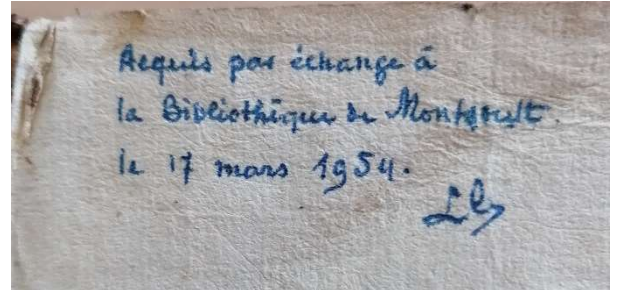 Acquis par échange à
la Bibliothèque de Montsoult.
le 17 mars 1954.